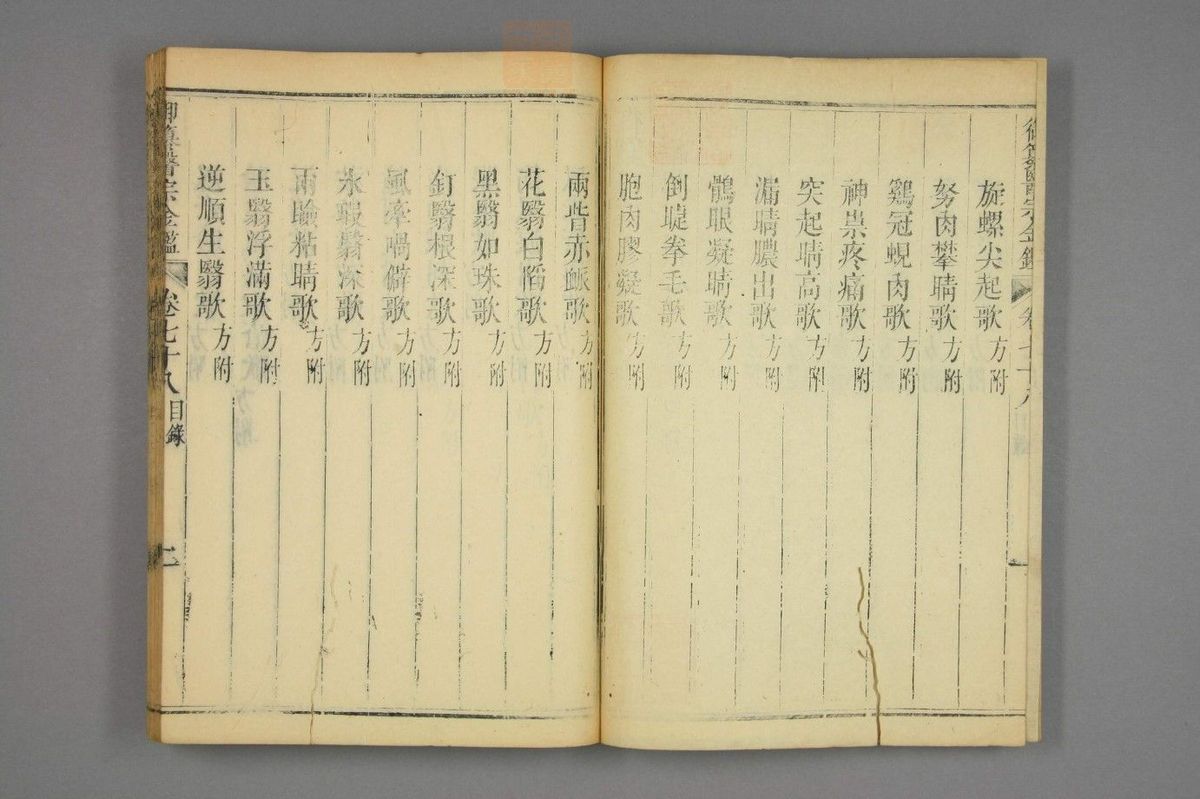 旋螺尖起歌方附
努肉攀睛歌方附
鷄冠蜆肉歌方附
神祟疼痛歌方附
突起睛高歌方附
漏睛膿出歌方附
鶻眼凝睛歌方附
倒睫拳毛歌方附
胞肉膠凝歌方附
兩眥赤脈歌方附
花翳白陷歌方附
黑翳如珠歌方附
釘翳根深歌方附
風牽喎僻歌方附
氷瑕翳深歌方附
兩瞼粘睛歌方附
玉翳浮滿歌方附
逆順生翳歌方附
御纂醫宗金鑑 卷七十八 目錄